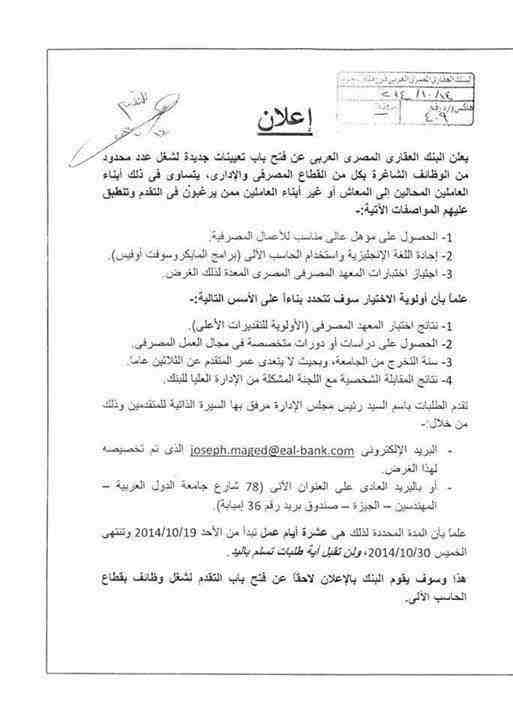 البنك العقارى المصرى العربى
٢٠١٤/١٠/١٤
٤٠٩
التقدم
إعلان
يعلن البنك العقارى المصرى العربى عن فتح باب تعيينات جديدة لشغل عدد محدود
من الوظائف الشاغرة بكل من القطاع المصرفى والإدارى، يتساوى فى ذلك أبناء
العاملين المحالين إلى المعاش أو غير أبناء العاملين ممن يرغبون فى التقدم وتنطبق
عليهم المواصفات الآتية:-
1- الحصول على مؤهل عالى مناسب للأعمال المصرفية.
2- إجادة اللغة الإنجليزية واستخدام الحاسب الآلى (برامج المايكروسوفت أوفيس).
3- اجتياز اختبارات المعهد المصرفى المصرى المعدة لذلك الغرض.
علماً بأن أولوية الاختيار سوف تتحدد بناءاً على الأسس التالية:-
1- نتائج اختبار المعهد المصرفى (الأولوية للتقديرات الأعلى).
2- الحصول على دراسات أو دورات متخصصة فى مجال العمل المصرفى.
3- سنة التخرج من الجامعة، وبحيث لا يتعدى عمر المتقدم عن الثلاثين عاماً.
4- نتائج المقابلة الشخصية مع اللجنة المشكلة من الإدارة العليا للبنك.
تقدم الطلبات باسم السيد رئيس مجلس الإدارة مرفق بها السيرة الذاتية للمتقدمين وذلك
من خلال:-
- البريد الإلكترونى joseph.maged@eal-bank.com الذى تم تخصيصه
لهذا الغرض.
- أو بالبريد العادى على العنوان الآتى (78 شارع جامعة الدول العربية –
المهندسين – الجيزة – صندوق بريد رقم 36 إمبابة).
علماً بأن المدة المحددة لذلك هى عشرة أيام عمل تبدأ من الأحد 2014/10/19 وتنتهى
الخميس 2014/10/30، ولن تقبل أية طلبات تسلم باليد.
هذا وسوف يقوم البنك بالإعلان لاحقاً عن فتح باب التقدم لشغل وظائف بقطاع
الحاسب الآلى.